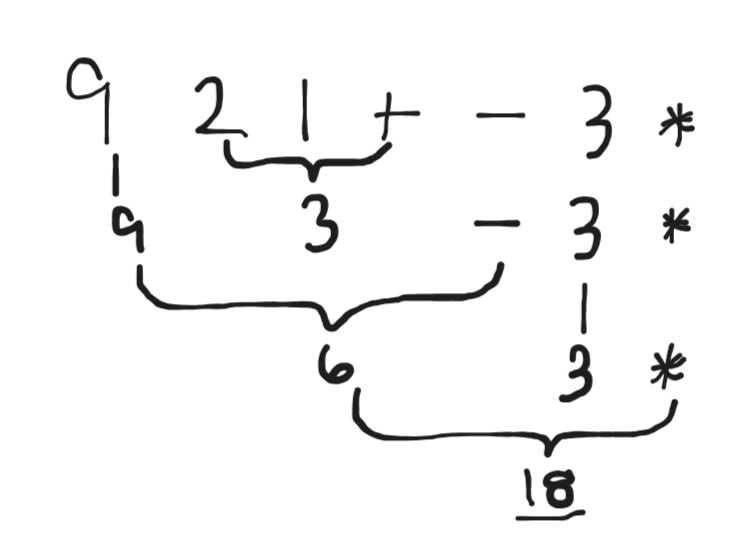 9 2 1 + - 3 *
9 3 - 3 *
6 3 *
18